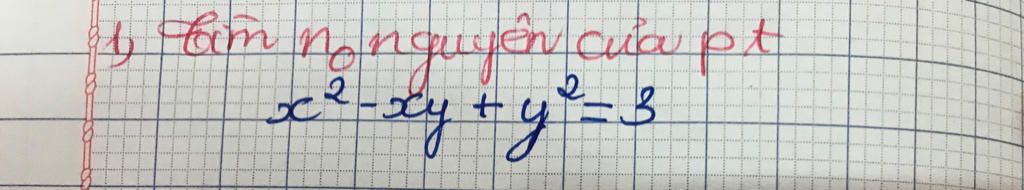 1, Tìm no nguyên của pt
x² - xy + y² = 3